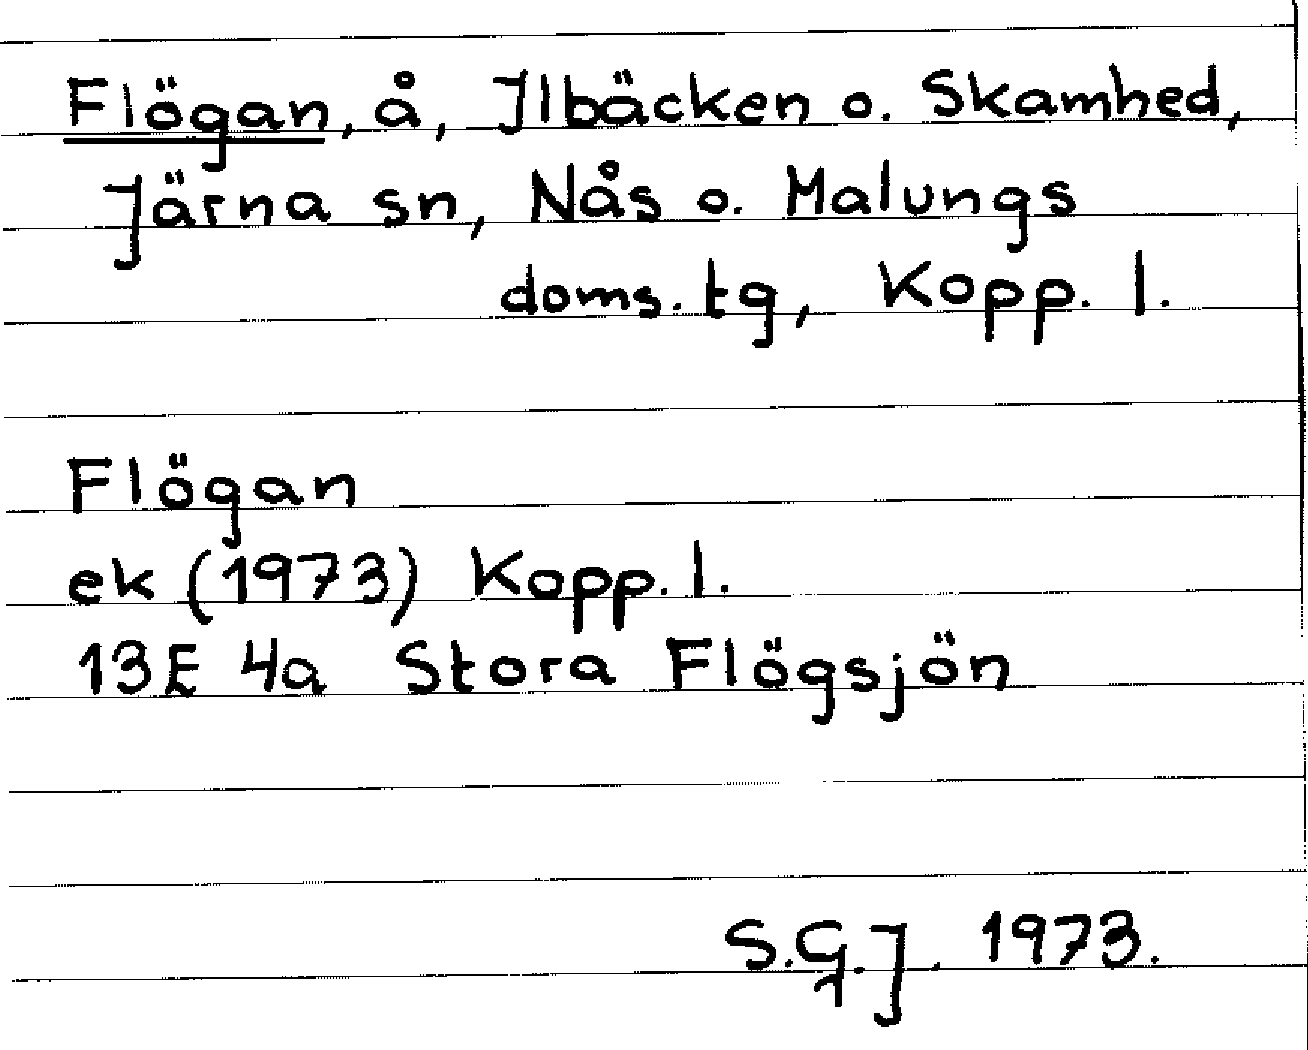 Flögan, å, Ilbäcken o. Skamhed,
Järna sn, Nås o. Malungs
doms. tg, Kopp. l.
Flögan
ek (1973) Kopp. l.
13E 4a Stora Flögsjön
S.G.J. 1973.